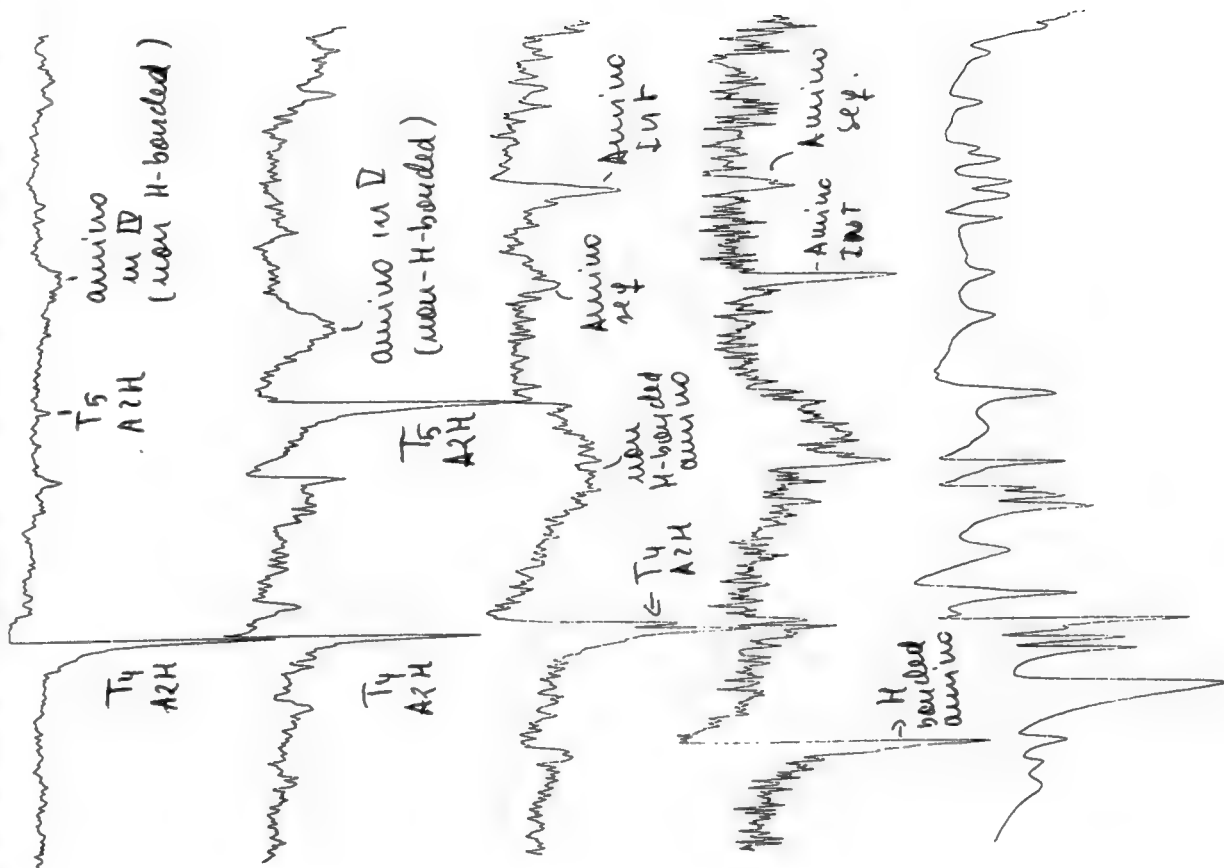 T4
A2H
T5
A2H
amino
in IV
(non H-bonded)
T4
A2H
T5
A2H
amino in IV
(non-H-bonded)
← T4
A2H
non
H-bonded
amino
Amino
seq
Amino
Int
→ H
bonded
amino
Amino
INT
Amino
seq.